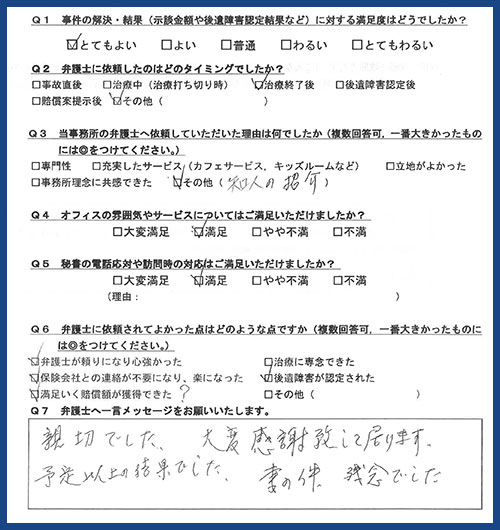 Q1 事件の解決・結果（示談金額や後遺障害認定結果など）に対する満足度はどうでしたか？
☑とてもよい □よい □普通 □わるい □とてもわるい
Q2 弁護士に依頼したのはどのタイミングでしたか？
□事故直後 □治療中（治療打ち切り時） ☑治療終了後 □後遺障害認定後
□賠償案提示後 ☑その他（ ）
Q3 当事務所の弁護士へ依頼していただいた理由は何でしたか（複数回答可，一番大きかったもの
には◎をつけてください。）
□専門性 □充実したサービス（カフェサービス，キッズルームなど） □立地がよかった
□事務所理念に共感できた ☑その他（知人の紹介）
Q4 オフィスの雰囲気やサービスについてはご満足いただけましたか？
□大変満足 ☑満足 □やや不満 □不満
Q5 秘書の電話応対や訪問時の対応はご満足いただけましたか？
□大変満足 ☑満足 □やや不満 □不満
（理由： ）
Q6 弁護士に依頼されてよかった点はどのような点ですか（複数回答可，一番大きかったものに
は◎をつけてください。）
☑弁護士が頼りになり心強かった □治療に専念できた
☑保険会社との連絡が不要になり、楽になった ☑後遺障害が認定された
☑満足いく賠償額が獲得できた ? □その他（ ）
Q7 弁護士へ一言メッセージをお願いいたします。
親切でした、 大変感謝致して居ります。
予定以上の結果でした、 妻の件、残念でした